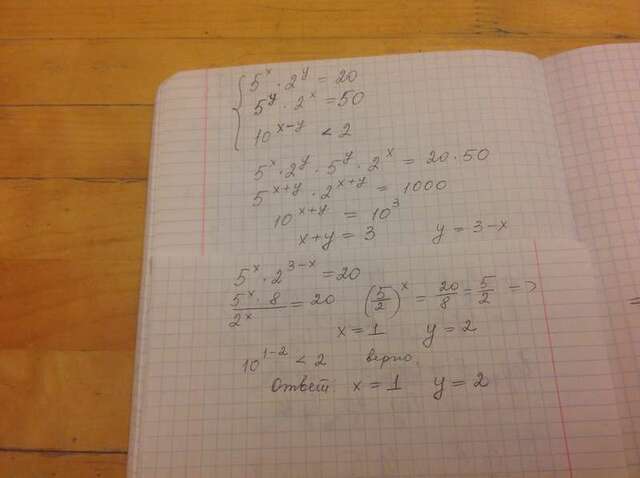 5^x · 2^y = 20
5^y · 2^x = 50
10^(x-y) < 2
5^x · 2^y · 5^y · 2^x = 20 · 50
5^(x+y) · 2^(x+y) = 1000
10^(x+y) = 10^3
x+y = 3 y = 3-x
5^x · 2^(3-x) = 20
(5^x · 8)/2^x = 20 (5/2)^x = 20/8 = 5/2 =>
x = 1 y = 2
10^(1-2) < 2 верно.
Ответ x = 1 y = 2